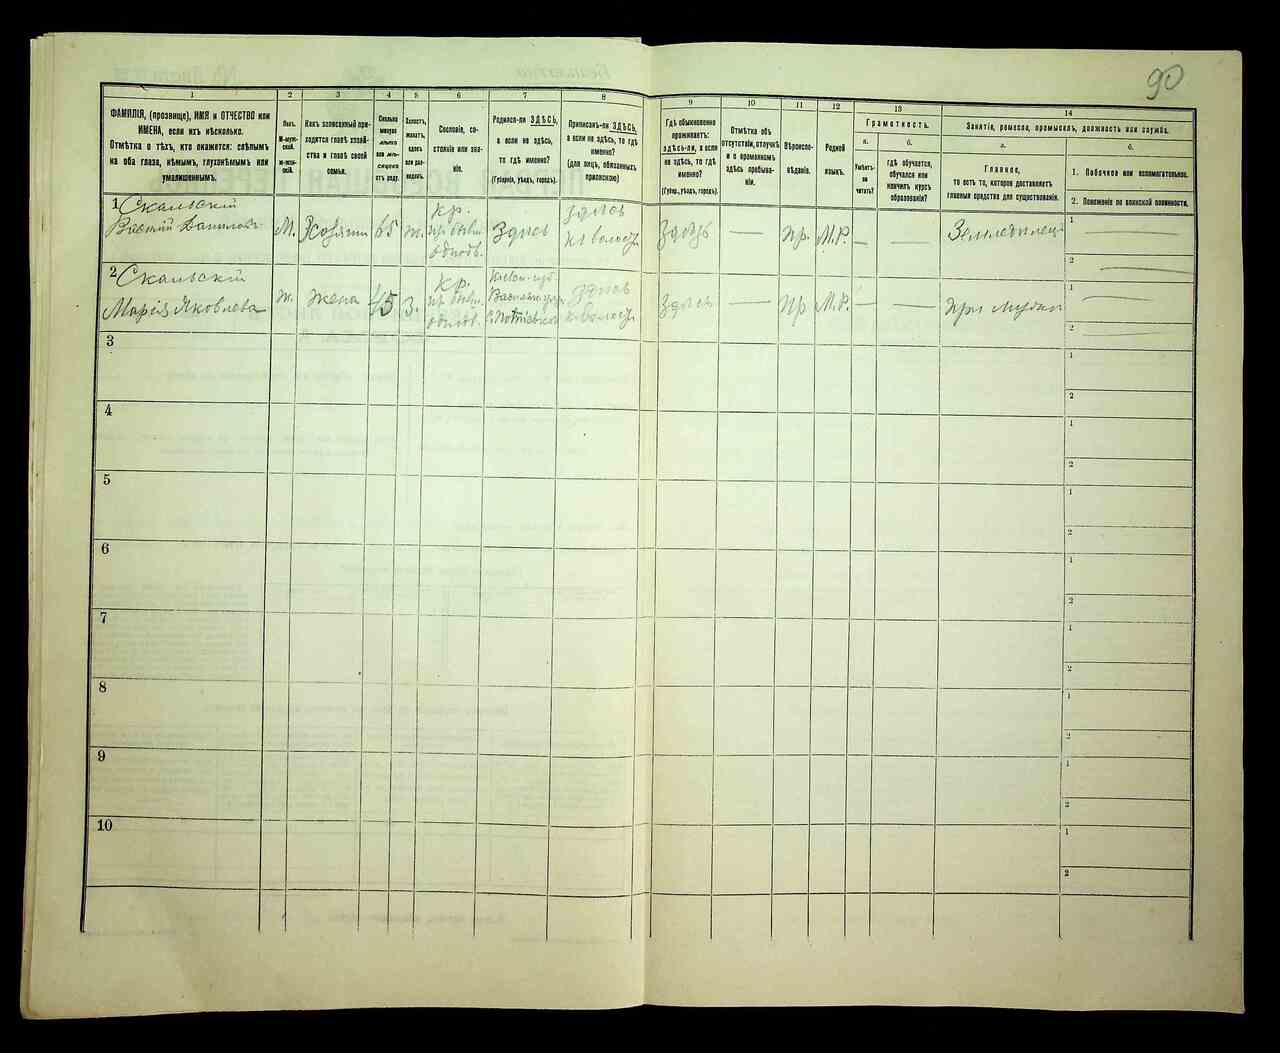 90
1
2
3
4
5
6
7
8
9
10
11
12
13
14
ФАМИЛІЯ, (прозвище), ИМЯ и ОТЧЕСТВО или
ИМЕНА, если ихъ нѣсколько.
Отмѣтка о тѣхъ, кто окажется: слѣпымъ
на оба глаза, нѣмымъ, глухонѣмымъ или
умалишеннымъ.
Полъ.
М-муж-
ской.
Ж-жен-
скій.
Какъ записанный при-
ходится главѣ хозяй-
ства и главѣ своей
семьи.
Сколько
минуло
лѣтъ
или мѣ-
сяцевъ
отъ роду.
Холостъ,
женатъ,
вдовъ
или раз-
веденъ.
Сословіе, со-
стояніе или зва-
ніе.
Родился-ли ЗДѢСЬ,
а если не здѣсь,
то гдѣ именно?
(Губернія, уѣздъ, городъ).
Приписанъ-ли ЗДѢСЬ,
а если не здѣсь, то гдѣ
именно?
(для лицъ, обязанныхъ
припискою)
Гдѣ обыкновенно
проживаетъ:
здѣсь-ли, а если
не здѣсь, то гдѣ
именно?
(Губернія, уѣздъ, городъ).
Отмѣтка объ
отсутствіи, отлучкѣ
и о временномъ
здѣсь пребыва-
ніи.
Вѣроиспо-
вѣданіе.
Родной
языкъ.
Грамотность.
а.
б.
Умѣетъ-
ли
читать?
гдѣ обучается,
обучался или
кончилъ курсъ
образованія?
Занятіе, ремесло, промыселъ, должность или служба.
а.
б.
Главное,
то есть то, которое доставляетъ
главныя средства для существованія.
1. Побочное или вспомогательное.
2. Положеніе по воинской повинности.
1
Скальскій
Василій Даниловъ
М.
Хозяинъ
65
ж.
кр.
Здѣсь
здѣсь
Здѣсь
—
Пр.
М.Р.
—
—
Земледѣлецъ
1 —
2 —
2
Скальскій
Марія Яковлева
ж.
жена
45
з.
кр.
Кіевск. губ.
здѣсь
Здѣсь
—
Пр
М.Р.
—
—
при мужѣ
1 —
2 —
3
1
2
4
1
2
5
1
2
6
1
2
7
1
2
8
1
2
9
1
2
10
1
2